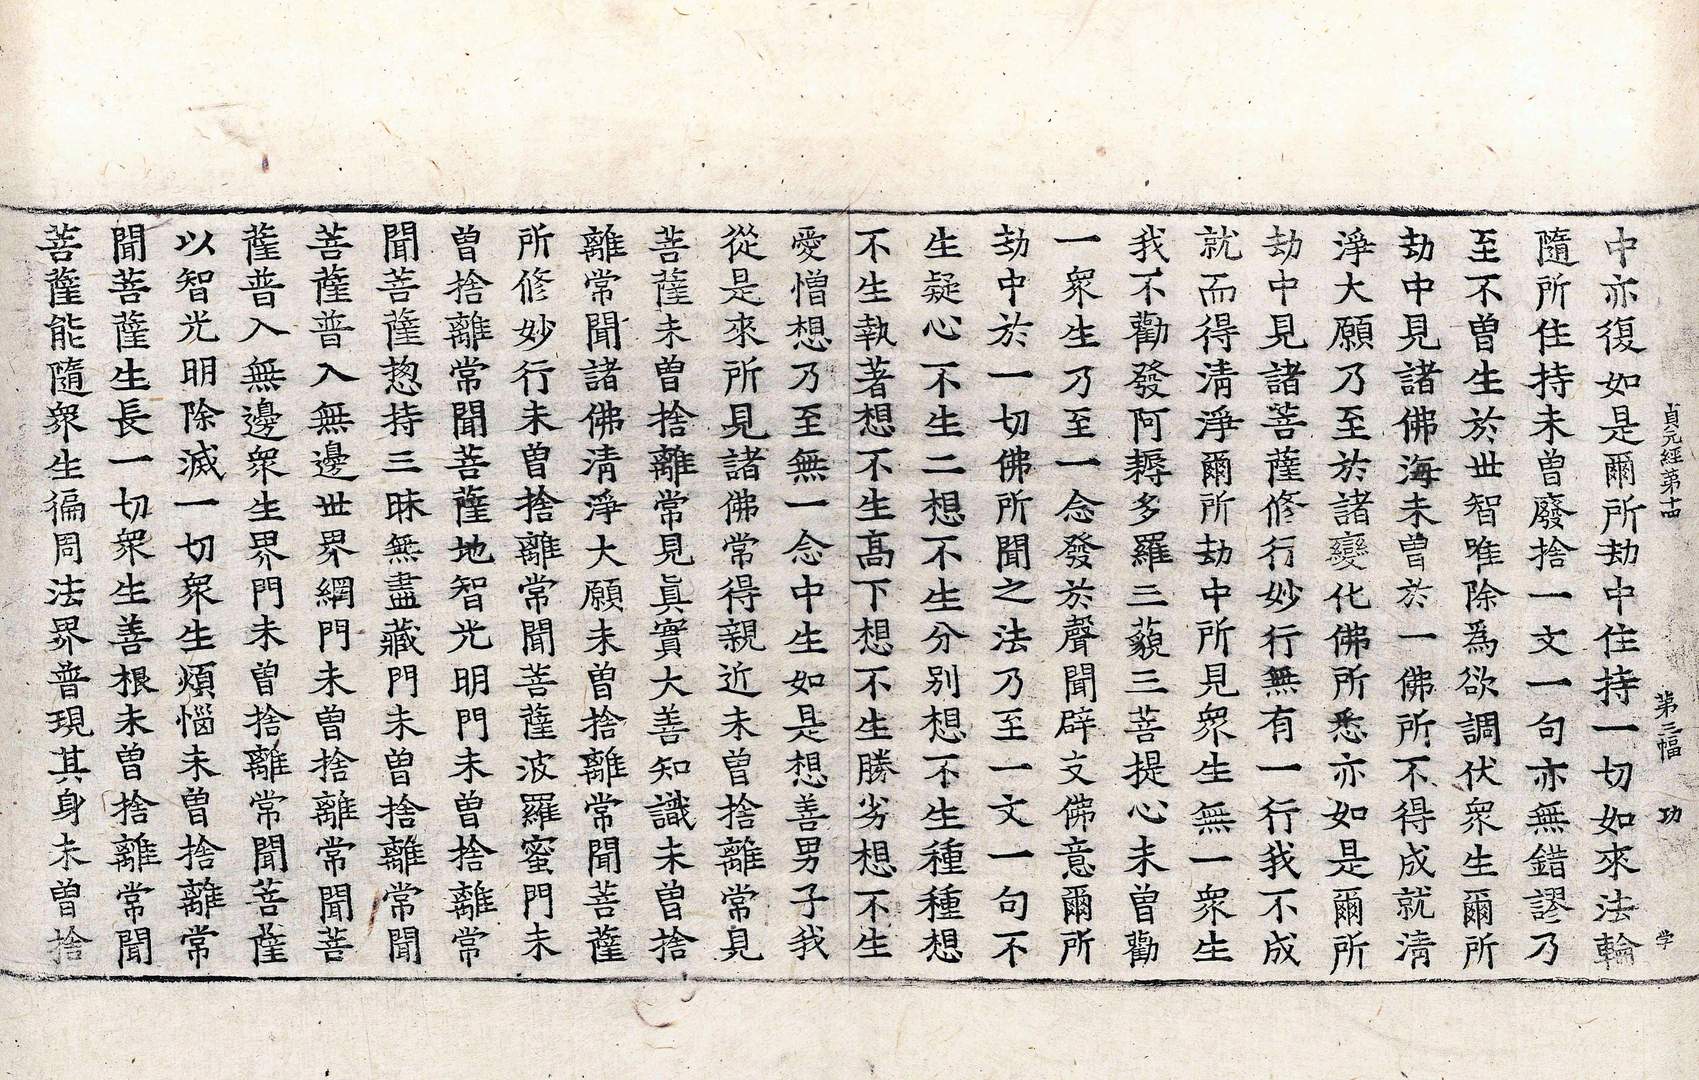 貞元經第十四 第三幅 功 学
中亦復如是爾所劫中住持一切如來法輪
隨所住持未曾廢捨一文一句亦無錯謬乃
至不曾生於世智唯除為欲調伏眾生爾所
劫中見諸佛海未曾於一佛所不得成就清
淨大願乃至於諸變化佛所悉亦如是爾所
劫中見諸菩薩修行妙行無有一行我不成
就而得清淨爾所劫中所見眾生無一眾生
我不勸發阿耨多羅三藐三菩提心未曾勸
一眾生乃至一念發於聲聞辟支佛意爾所
劫中於一切佛所聞之法乃至一文一句不
生疑心不生二想不生分別想不生種種想
不生執著想不生高下想不生勝劣想不生
愛憎想乃至無一念中生如是想善男子我
從是來所見諸佛常得親近未曾捨離常見
菩薩未曾捨離常見真實大善知識未曾捨
離常聞諸佛清淨大願未曾捨離常聞菩薩
所修妙行未曾捨離常聞菩薩波羅蜜門未
曾捨離常聞菩薩地智光明門未曾捨離常
聞菩薩惣持三昧無盡藏門未曾捨離常聞
菩薩普入無邊世界網門未曾捨離常聞菩
薩普入無邊眾生界門未曾捨離常聞菩薩
以智光明除滅一切眾生煩惱未曾捨離常
聞菩薩生長一切眾生善根未曾捨離常聞
菩薩能隨眾生徧周法界普現其身未曾捨